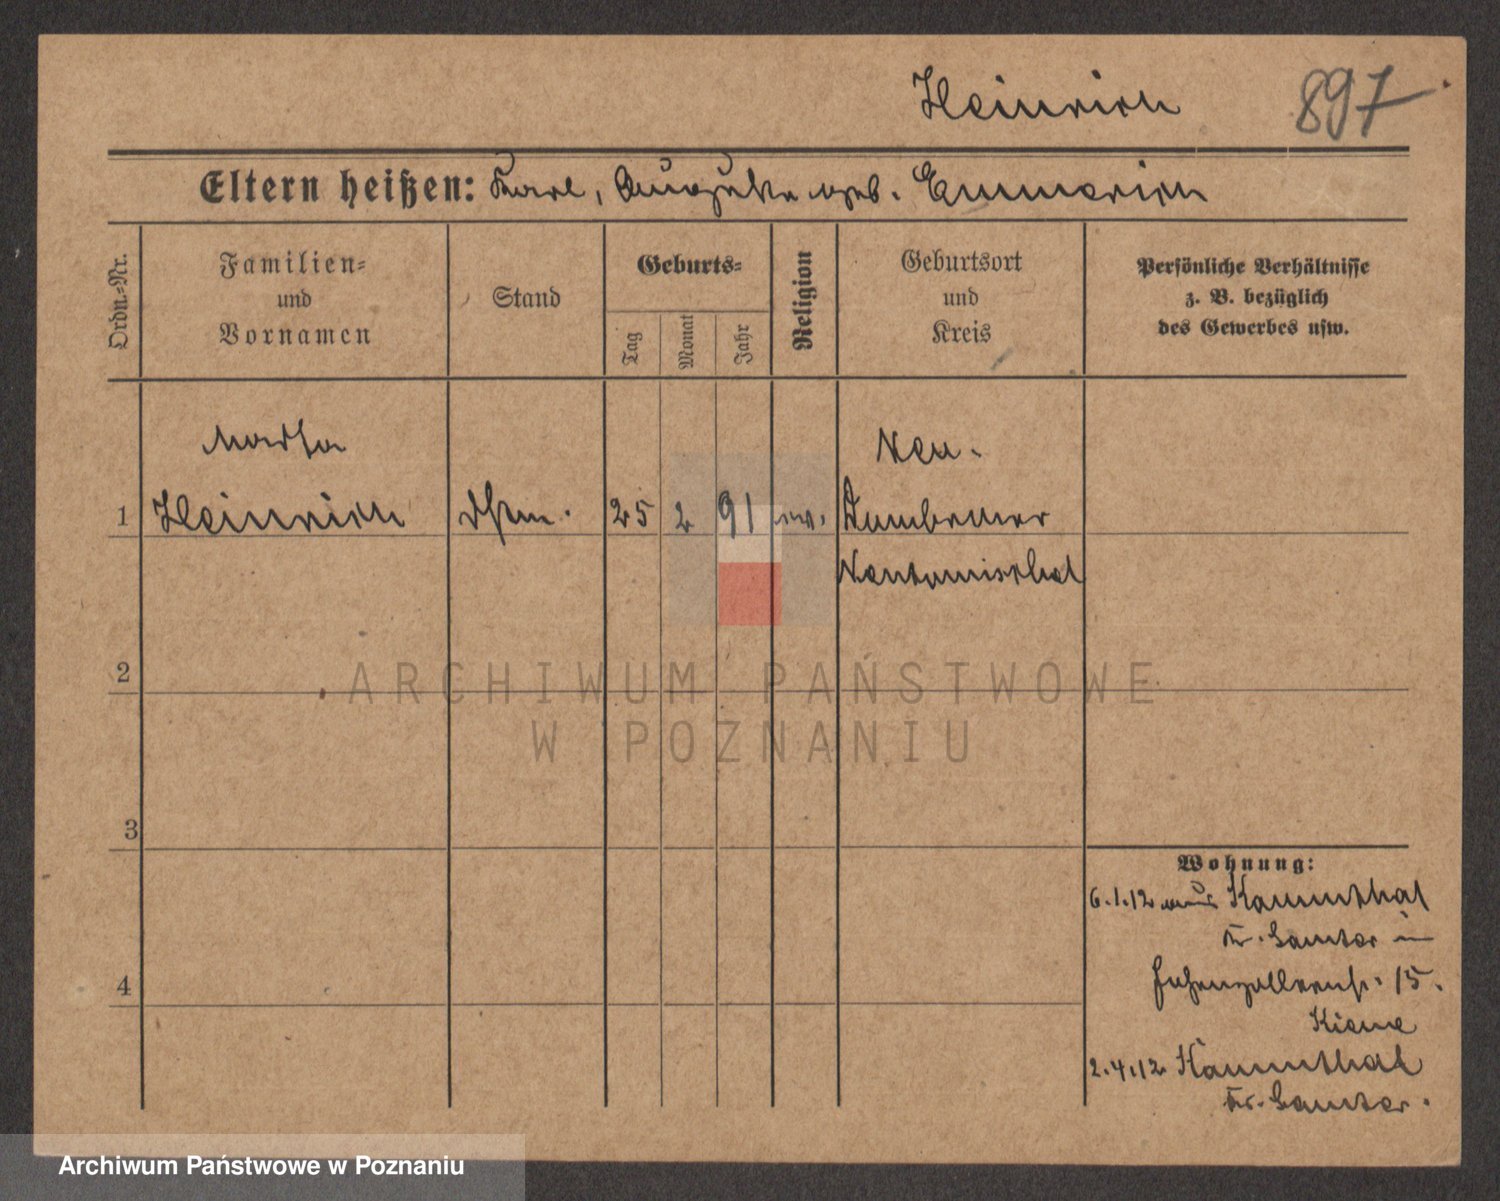 Heinrich 897
Eltern heißen: Karl, Auguste geb. Emmerich
Ordn.-Nr.
Familien-
und
Vornamen
Stand
Geburts-
Tag
Monat
Jahr
Religion
Geburtsort
und
Kreis
Persönliche Verhältnisse
z. B. bezüglich
des Gewerbes usw.
Martha
Neu-
1 Heinrich 25 2 91 ev.
Neutomischel
2
ARCHIWUM PAŃSTWOWE
W POZNANIU
3
Wohnung:
6.1.12 aus Kammthal
Kr. Samter in
Hohenzollernstr. 15.
4
2.4.12 Kammthal
Kr. Samter.
Archiwum Państwowe w Poznaniu